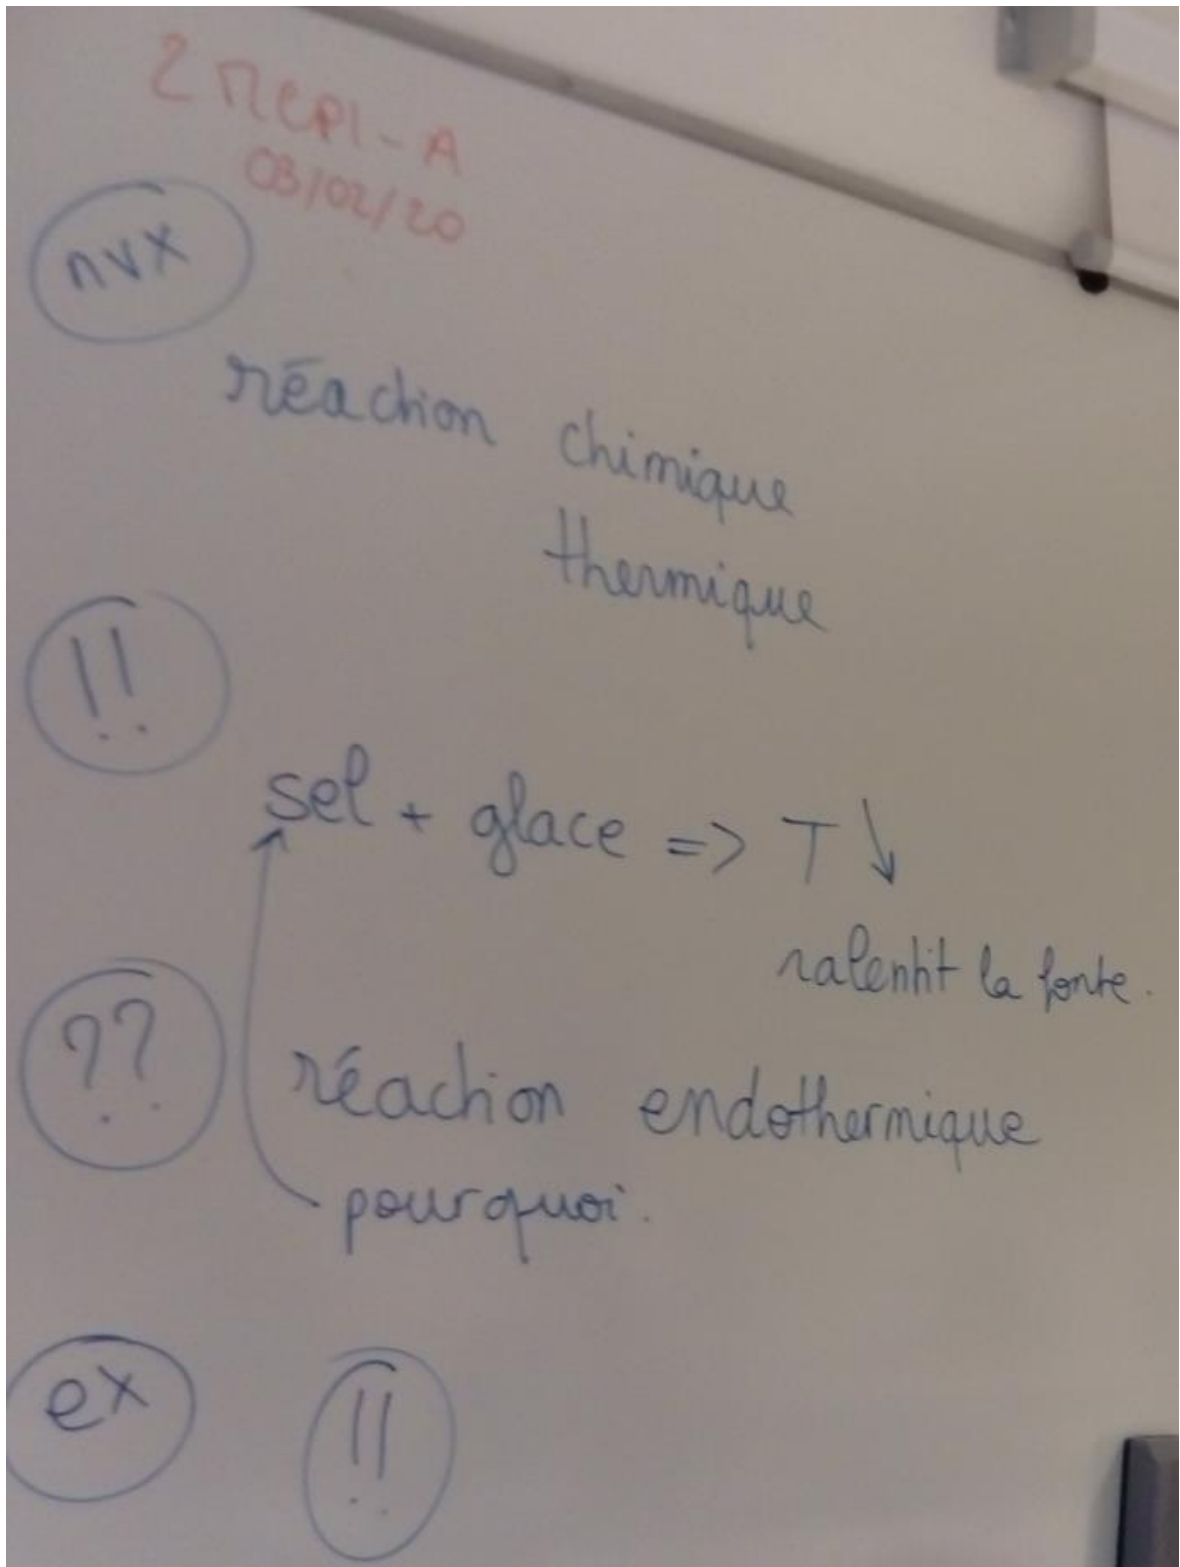 2 MCPI-A
03/02/20
nvx
réaction chimique
thermique
!!
sel + glace => T ↓
ralentit la fonte.
??
réaction endothermique
pourquoi.
ex
!!